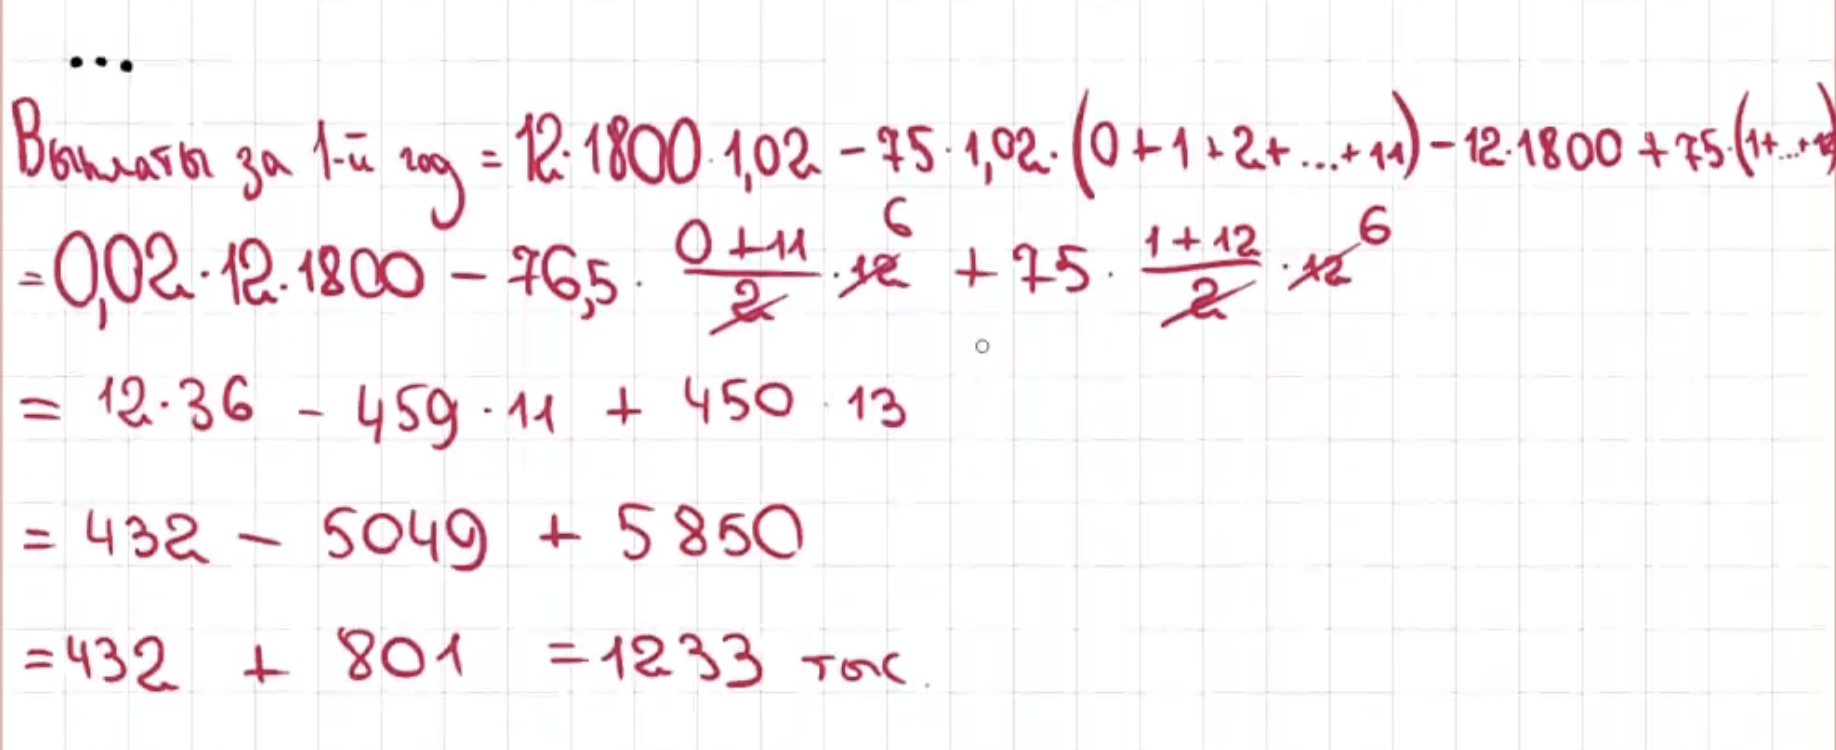 ...
Выплаты за 1-й год = 12·1800·1,02 - 75·1,02·(0+1+2+...+11) - 12·1800 + 75·(1+...+12)
= 0,02·12·1800 - 76,5 · (0+11)/2 · 12 6 + 75 · (1+12)/2 · 12 6
= 12·36 - 459·11 + 450·13
= 432 - 5049 + 5850
= 432 + 801 = 1233 тыс.